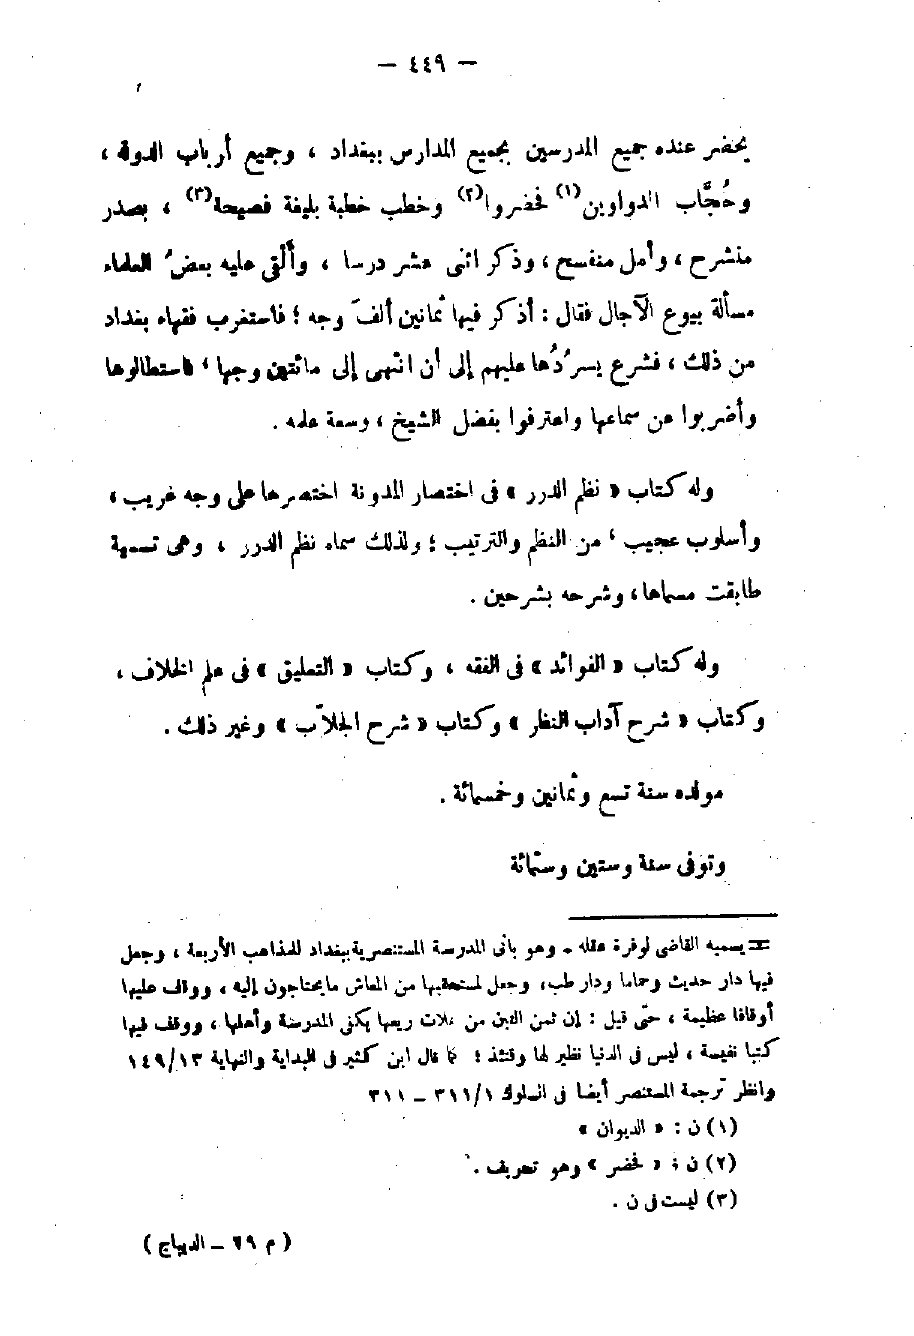 — ٤٤٩ —
يحضر عنده جميع المدرسين بجميع المدارس ببغداد ، وجميع أرباب الدولة ،
وحُجَّاب الدواوين(١) فحضروا(٢) وخطب خطبة بليغة فصيحة(٣) ، بصدر
منشرح ، وأمل منفسح ، وذكر اثنى عشر درسا ، وأَلْقى عليه بعضُ العلماء
مسألة بيوع الآجال فقال : أذكر فيها ثمانين ألفَ وجه ؛ فاستغرب فقهاء بغداد
من ذلك ، فشرع يسرُدُها عليهم إلى أن انتهى إلى مائتين وجها ، فاستطالوها
وأضربوا عن سماعها واعترفوا بفضل الشيخ ، وسعة علمه .
وله كتاب « نظم الدرر » فى اختصار المدونة اختصرها على وجه غريب ،
وأسلوب عجيب ، من النظم والترتيب ؛ ولذلك سماه نظم الدرر ، وهى تسمية
طابقت مسماها ، وشرحه بشرحين .
وله كتاب « الفوائد » فى الفقه ، وكتاب « التعليق » فى علم الخلاف ،
وكتاب « شرح آداب النظر » وكتاب « شرح الجلاّب » وغير ذلك .
مولده سنة تسع وثمانين وخمسمائة .
وتوفى سنة وستين وستمائة
= يسميه القاضى لوفرة عقله . وهو بانى المدرسة المستنصرية ببغداد للمذاهب الأربعة ، وجعل
فيها دار حديث وحماما ودار طب ، وجعل لمستحقيها من المعاش ما يحتاجون إليه ، ووقف عليها
أوقافا عظيمة ، حتى قيل : إن ثمن التبن من غلات ريعها يكفى المدرسة وأهلها ، ووقف فيها
كتبا نفيسة ، ليس فى الدنيا نظير لها وقتئذ ؛ كما قال ابن كثير فى البداية والنهاية ١٤٩/١٣
وانظر ترجمة المستنصر أيضا فى السلوك ٣١١/١ – ٣١١
(١) ن : « الديوان »
(٢) ن : « فحضر » وهو تحريف .
(٣) ليست فى ن .
( م ٢٩ – الديباج )